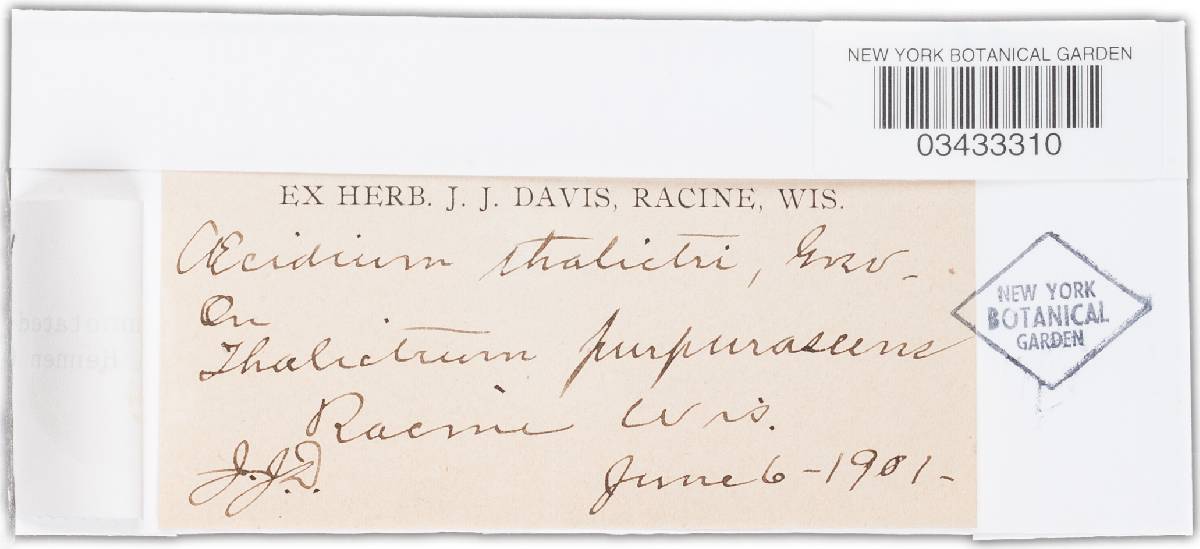 NEW YORK BOTANICAL GARDEN
03433310
EX HERB. J. J. DAVIS, RACINE, WIS.
Æcidium thalictri, Grev-
On
Thalictrum purpurascens
Racine Wis.
J.J.D.
June 6-1901-
NEW YORK
BOTANICAL
GARDEN